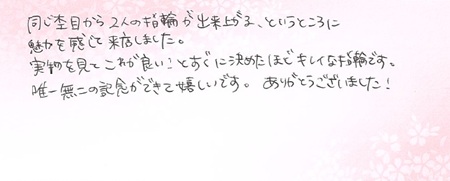 同じ杢目から2人の指輪が出来上がる、というところに
魅力を感じて来店しました。
実物を見てこれが良い！とすぐに決めたほどキレイな指輪です。
唯一無二の記念ができて嬉しいです。ありがとうございました！